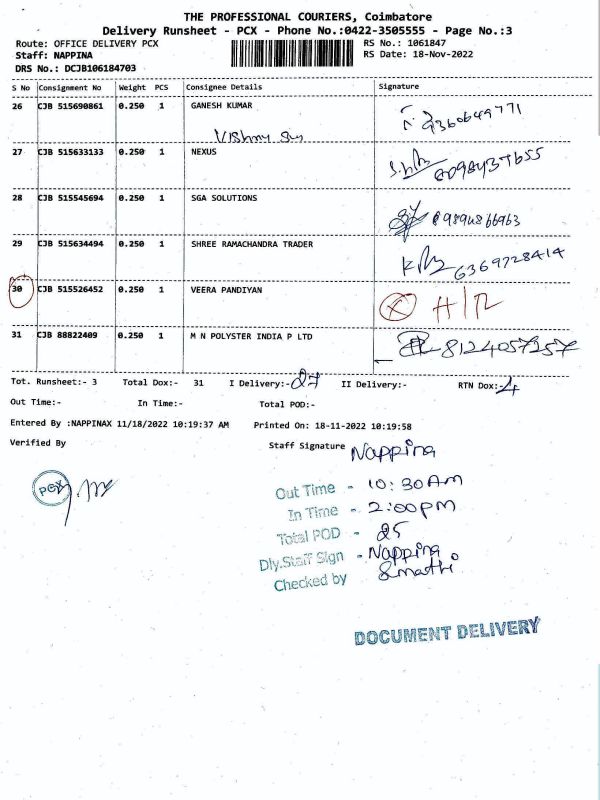 THE PROFESSIONAL COURIERS, Coimbatore
Delivery Runsheet - PCX - Phone No.:0422-3505555 - Page No.:3
Route: OFFICE DELIVERY PCX RS No.: 1061847
Staff: NAPPINA RS Date: 18-Nov-2022
DRS No.: DCJB106184703
S No Consignment No Weight PCS Consignee Details Signature
26 CJB 515690861 0.250 1 GANESH KUMAR
9360649771
27 CJB 515633133 0.250 1 NEXUS
28 CJB 515545694 0.250 1 SGA SOLUTIONS
29 CJB 515634494 0.250 1 SHREE RAMACHANDRA TRADER
6369728414
30 CJB 515526452 0.250 1 VEERA PANDIYAN
31 CJB 88822409 0.250 1 M N POLYSTER INDIA P LTD 8124057257
Tot. Runsheet:- 3 Total Dox:- 31 I Delivery:- 27 II Delivery:- RTN Dox:- 4
Out Time:- In Time:- Total POD:-
Entered By :NAPPINAX 11/18/2022 10:19:37 AM Printed On: 18-11-2022 10:19:58
Verified By Staff Signature Nappina
PCX
Out Time - 10:30AM
In Time - 2:00pm
Total POD - 25
Dly.Staff Sign - Nappina
Checked by
DOCUMENT DELIVERY